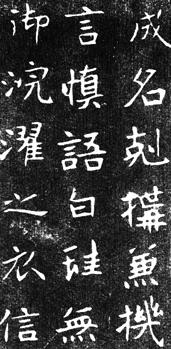 成名剋搆兼機
言慎語白珪無
御浣濯之衣信